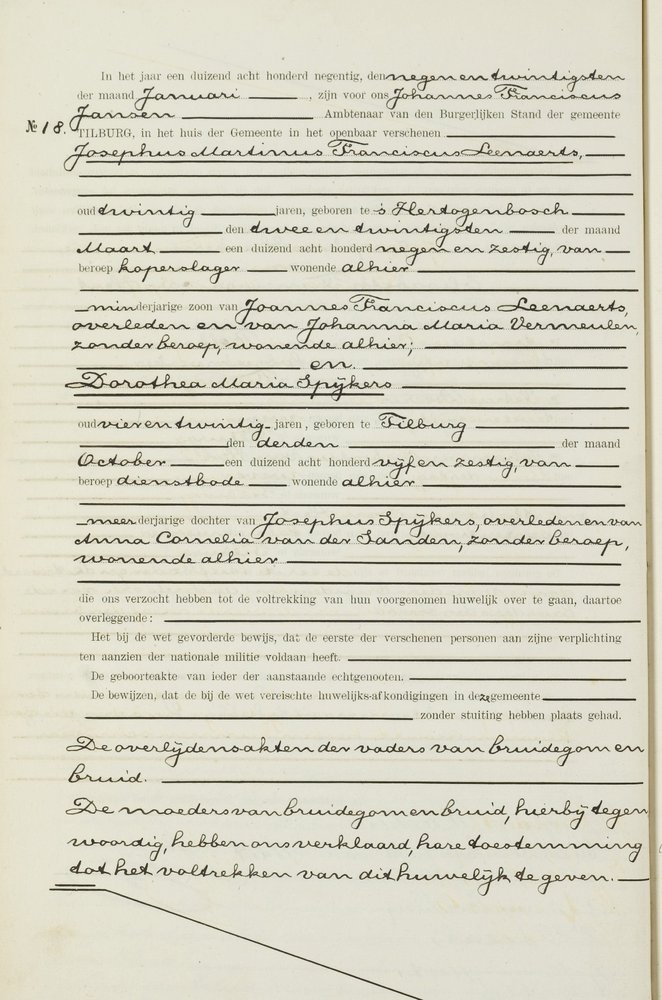 In het jaar een duizend acht honderd negentig, den negen en twintigsten
der maand Januari, zijn voor ons Johannes Franciscus
Jansen Ambtenaar van den Burgerlijken Stand der gemeente
№ 18. TILBURG, in het huis der Gemeente in het openbaar verschenen
Josephus Martinus Franciscus Leenaerts,
oud twintig jaren, geboren te 's Hertogenbosch
den twee en twintigsten der maand
Maart een duizend acht honderd negen en zestig, van
beroep koperslager wonende alhier
minderjarige zoon van Joannes Franciscus Leenaerts,
overleden en van Johanna Maria Vermeulen,
zonder beroep, wonende alhier;
en.
Dorothea Maria Spijkers
oud vier en twintig jaren, geboren te Tilburg
den derden der maand
October een duizend acht honderd vijf en zestig, van
beroep dienstbode wonende alhier
meerderjarige dochter van Josephus Spijkers, overleden en van
Anna Cornelia van der Sanden, zonder beroep,
wonende alhier
die ons verzocht hebben tot de voltrekking van hun voorgenomen huwelijk over te gaan, daartoe
overleggende:
Het bij de wet gevorderde bewijs, dat de eerste der verschenen personen aan zijne verplichting
ten aanzien der nationale militie voldaan heeft.
De geboorteakte van ieder der aanstaande echtgenooten.
De bewijzen, dat de bij de wet vereischte huwelijks-afkondigingen in deze gemeente
zonder stuiting hebben plaats gehad.
De overlijdensakten der vaders van bruidegom en
bruid.
De moeders van bruidegom en bruid, hierbij tegen
woordig, hebben ons verklaard, hare toestemming
tot het voltrekken van dit huwelijk te geven.